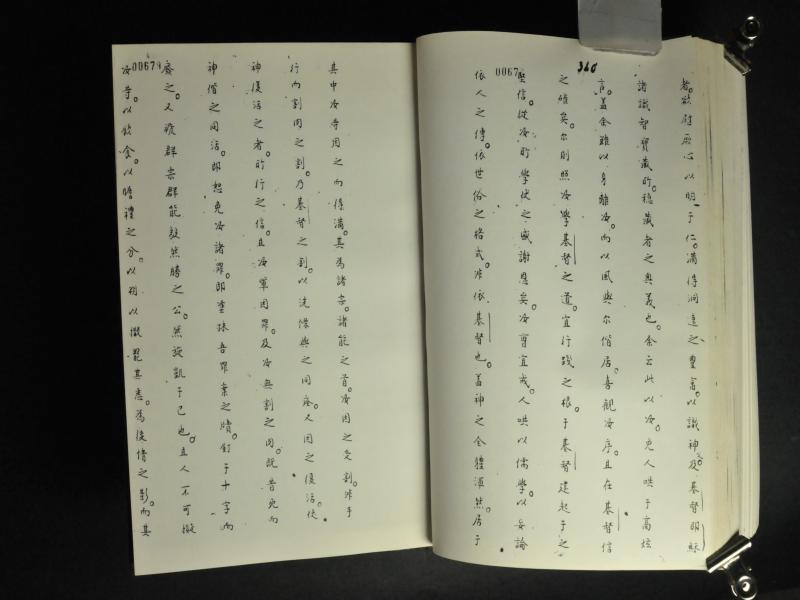 340
0067
者。欲慰厥心以明于仁。滿得洞達之豐富。以識神及基督耶穌
諸識智寶藏所穩藏者之奧義也。余云此以汝免人哄于高炫
言。蓋余雖以身離汝。而以風與尔偕居。喜觀汝序。且在基督信
之確矣。尔則照汝學基督之道。宜行踐之。根于基督建起于之
堅信。從汝所學伏之感謝恩矣。汝曹宜戒人哄以儒學。以妄論
依人之傳。依世俗之格式。非依基督也。蓋神之全體渾然居于
00679
其中汝等因之而得滿。其為諸宰。諸能之首。汝因之受割。非手
行肉割肉之割。乃基督之割。以洗滌與之同瘞。又因之復活伏
神復活之者。所行之信。且汝軍因罪。及汝無割之肉。昔死而
神偕之同活。即恕免汝諸罪。即塗抹吾罪案之牘。釘于十字而
廢之。又褫群宰群能毅然勝之。公然旋凱于己也。且人不可擬
汝等。以飲食。以瞻禮之分。以朔以撒罷其意。為後情之影。而其